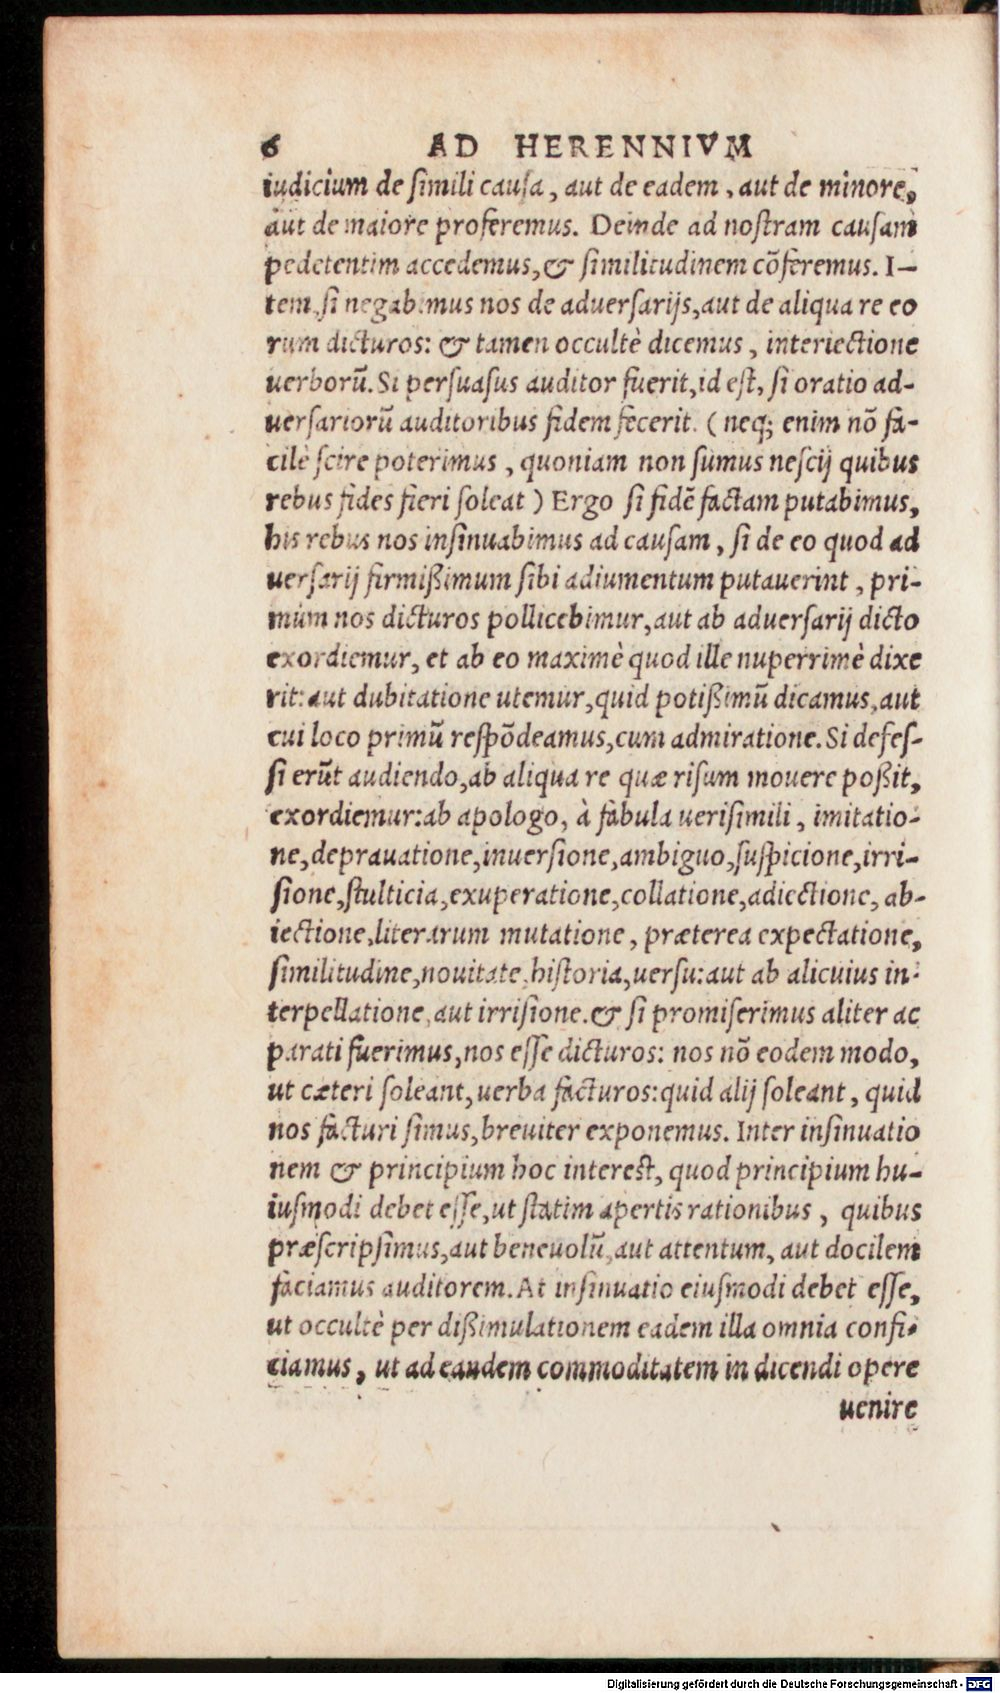 6 AD HERENNIVM
iudicium de simili causa, aut de eadem, aut de minore,
aut de maiore proferemus. Deinde ad nostram causam
pedetentim accedemus, & similitudinem cōferemus. I-
tem, si negabimus nos de aduersarijs, aut de aliqua re eo
rum dicturos: & tamen occultè dicemus, interiectione
uerborũ. Si persuasus auditor fuerit, id est, si oratio ad-
uersariorũ auditoribus fidem fecerit. (neq; enim nō fa-
cilè scire poterimus, quoniam non sumus nescij quibus
rebus fides fieri soleat) Ergo si fidẽ factam putabimus,
his rebus nos insinuabimus ad causam, si de eo quod ad
uersarij firmißimum sibi adiumentum putauerint, pri-
mùm nos dicturos pollicebimur, aut ab aduersarij dicto
exordiemur, et ab eo maximè quod ille nuperrimè dixe
rit: aut dubitatione utemur, quid potißimũ dicamus, aut
cui loco primũ respōdeamus, cum admiratione. Si defes-
si erũt audiendo, ab aliqua re quæ risum mouere poßit,
exordiemur: ab apologo, à fabula uerisimili, imitatio-
ne, deprauatione, inuersione, ambiguo, suspicione, irri-
sione, stulticia, exuperatione, collatione, adiectione, ab-
iectione, literarum mutatione, præterea expectatione,
similitudine, nouitate, historia, uersu: aut ab alicuius in-
terpellatione, aut irrisione. & si promiserimus aliter ac
parati fuerimus, nos esse dicturos: nos nō eodem modo,
ut cæteri soleant, uerba facturos: quid alij soleant, quid
nos facturi simus, breuiter exponemus. Inter insinuatio
nem & principium hoc interest, quod principium hu-
iusmodi debet esse, ut statim apertis rationibus, quibus
præscripsimus, aut beneuolũ, aut attentum, aut docilem
faciamus auditorem. At insinuatio eiusmodi debet esse,
ut occultè per dißimulationem eadem illa omnia confi-
ciamus, ut ad eandem commoditatem in dicendi opere
uenire
Digitalisierung gefördert durch die Deutsche Forschungsgemeinschaft - DFG